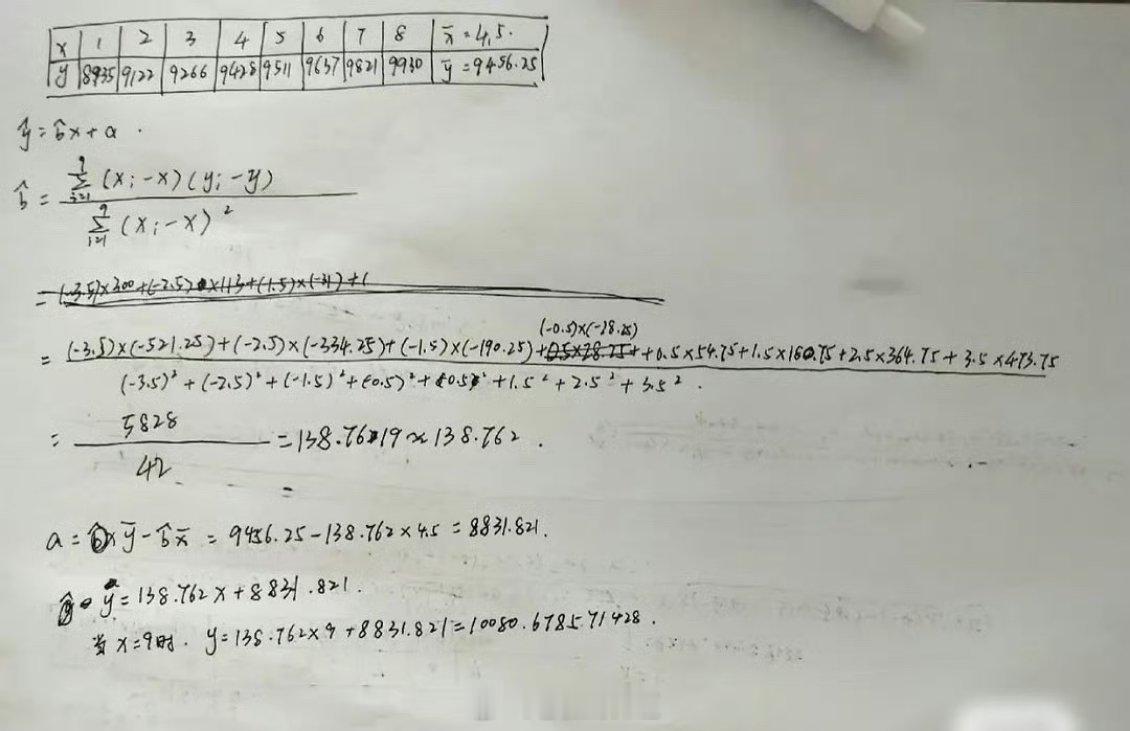 x 1 2 3 4 5 6 7 8 x̄=4.5.
y 8935 9122 9266 9428 9511 9637 9821 9930 ȳ=9456.25
ŷ=b̂x+a.
b̂= Σ(xi-x)(yi-y)
Σ(xi-x)²
=(-3.5)×300+(-2.5)×113+(1.5)×(-31)+(
(-0.5)×(-28.25)
= (-3.5)×(-521.25)+(-2.5)×(-334.25)+(-1.5)×(-190.25)+0.5×28.75++0.5×54.75+1.5×180.75+2.5×364.75+3.5×473.75
(-3.5)²+(-2.5)²+(-1.5)²+(-0.5)²+(0.5)²+1.5²+2.5²+3.5².
= 5828 =138.7619≈138.762.
42
=
a= ȳ-b̂x̄ = 9456.25-138.762×4.5=8831.821.
ŷ=138.762x+8831.821.
当x=9时. y=138.762×9+8831.821=10080.678571428.